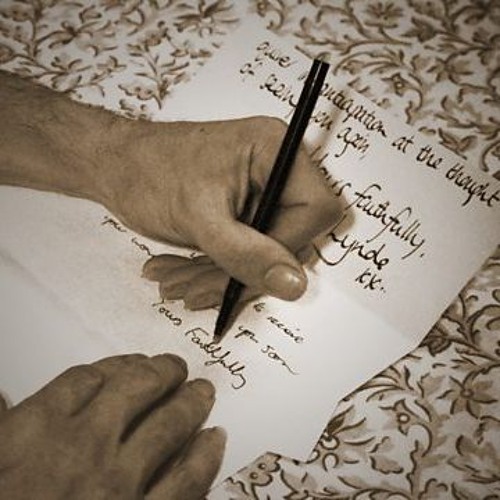 anticipation at the thought
of seeing you again,
Yours faithfully,
Lynda
xx.
your
to receive
you soon
Yours Faithfully